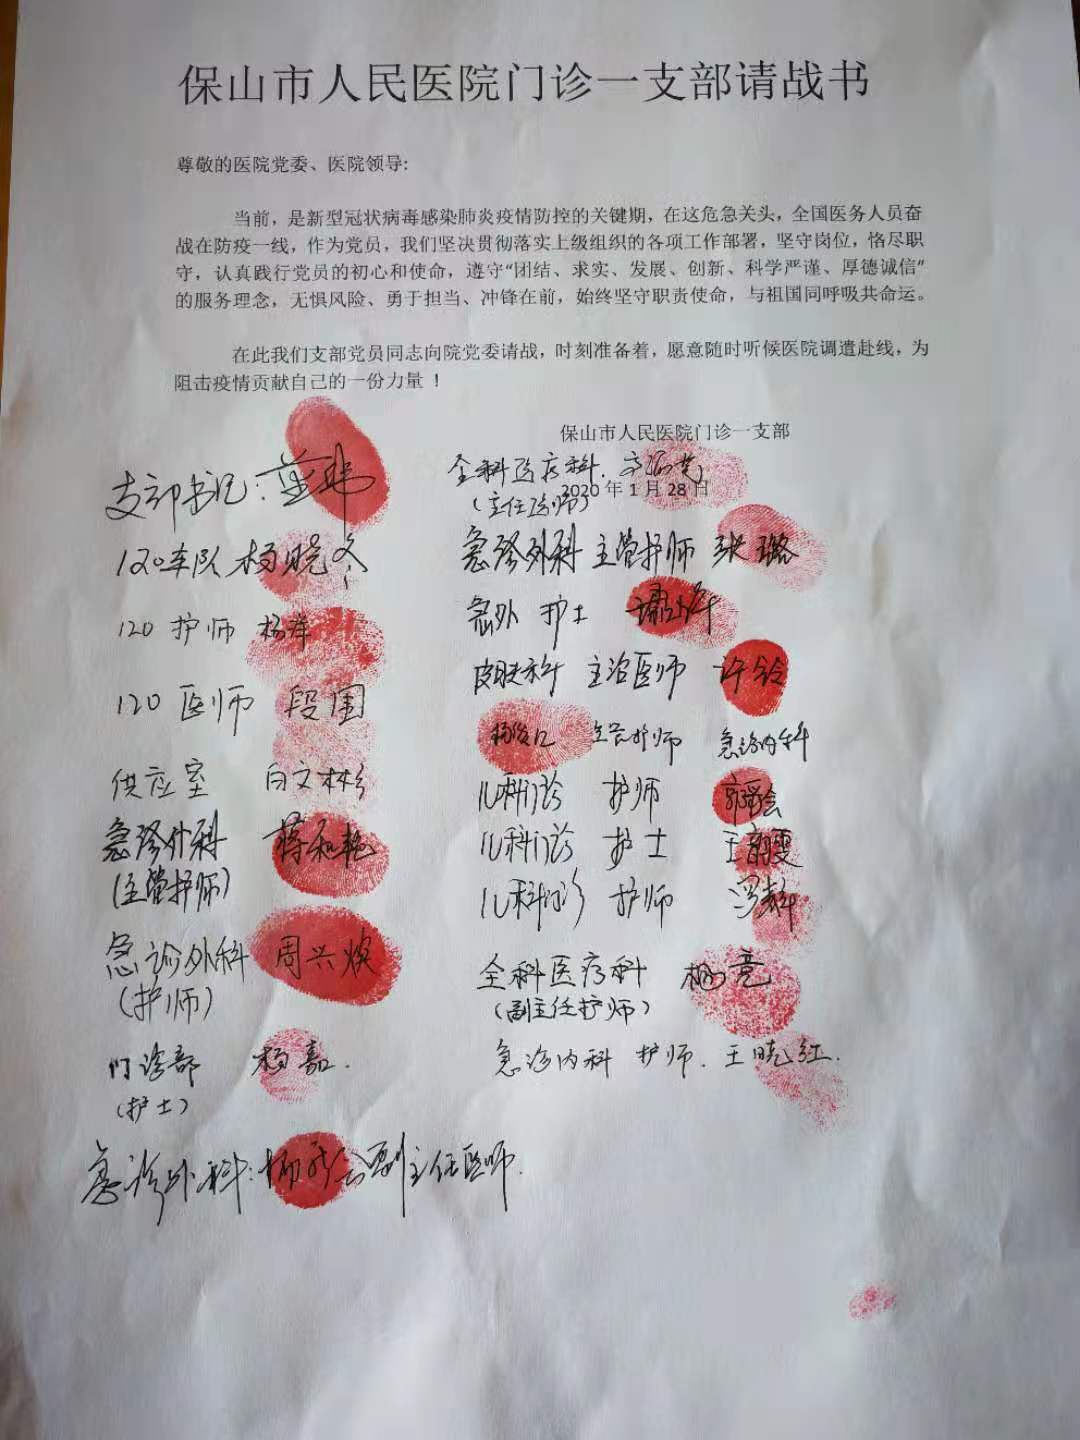 保山市人民医院门诊一支部请战书
尊敬的医院党委、医院领导:
当前，是新型冠状病毒感染肺炎疫情防控的关键期，在这危急关头，全国医务人员奋
战在防疫一线，作为党员，我们坚决贯彻落实上级组织的各项工作部署，坚守岗位，恪尽职
守，认真践行党员的初心和使命，遵守“团结、求实、发展、创新、科学严谨、厚德诚信”
的服务理念，无惧风险、勇于担当、冲锋在前，始终坚守职责使命，与祖国同呼吸共命运。
在此我们支部党员同志向院党委请战，时刻准备着，愿意随时听候医院调遣赴线，为
阻击疫情贡献自己的一份力量！
保山市人民医院门诊一支部
2020年1月28日
支部书记:
120车队 杨晓冬
120 护师 杨萍
120 医师 段围
供应室 白文彬
急诊外科 蒋和艳
(主管护师)
急诊外科 周兴焕
(护师)
门诊部 杨嘉.
(护士)
急诊外科: 副主任医师.
全科医疗科.
(主任医师)
急诊外科 主管护师 张璐
急外 护士
皮肤科 主治医师 许铃
主管护师 急诊内科
儿科门诊 护师
儿科门诊 护士
儿科门诊 护师
全科医疗科 杨亮
(副主任护师)
急诊内科 护师. 王晓红.